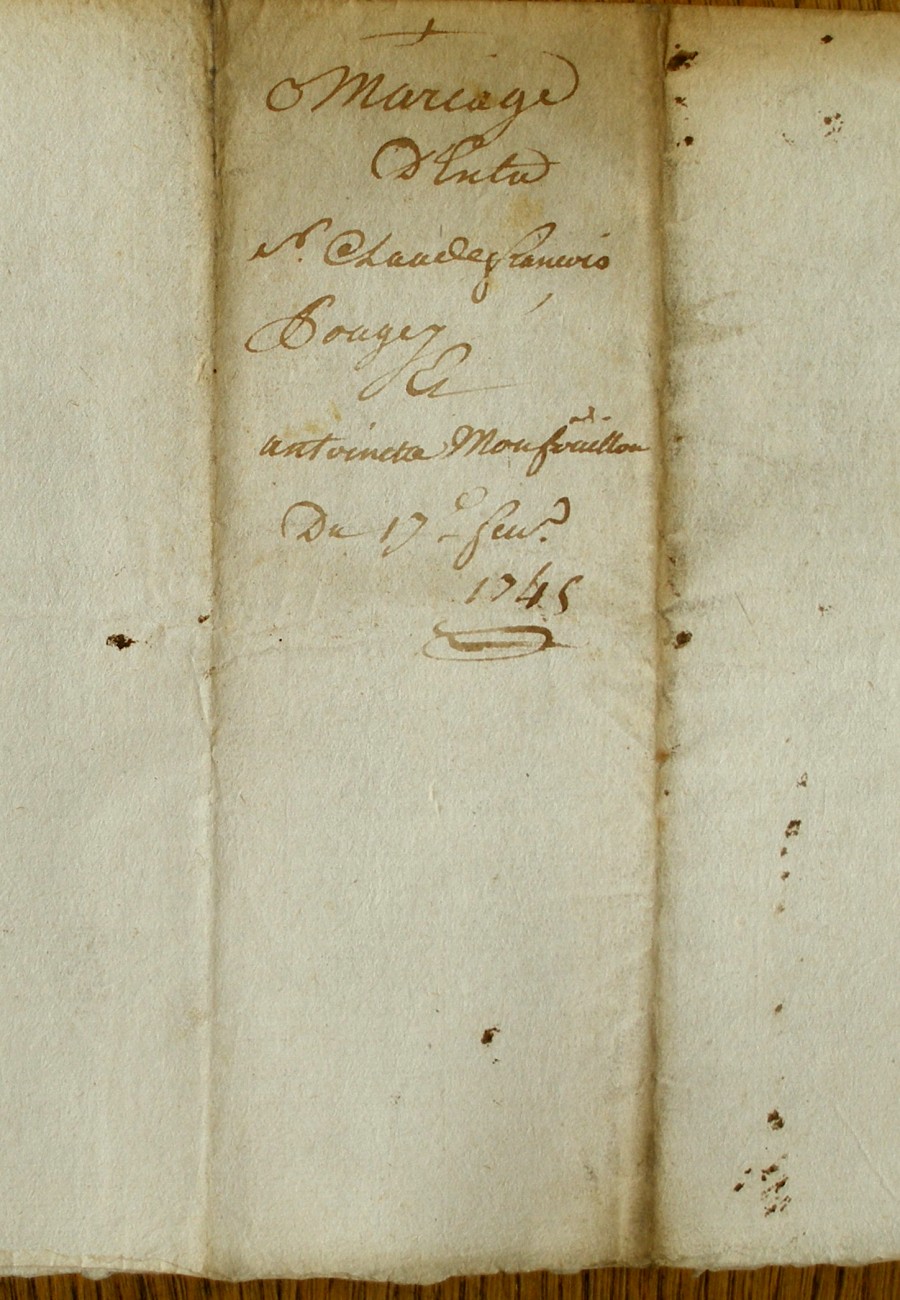 Mariage
D'Entre
Sr. Claude francois
Pougez
Et
antoinette Monfouillou
Du 17e feur.
1745